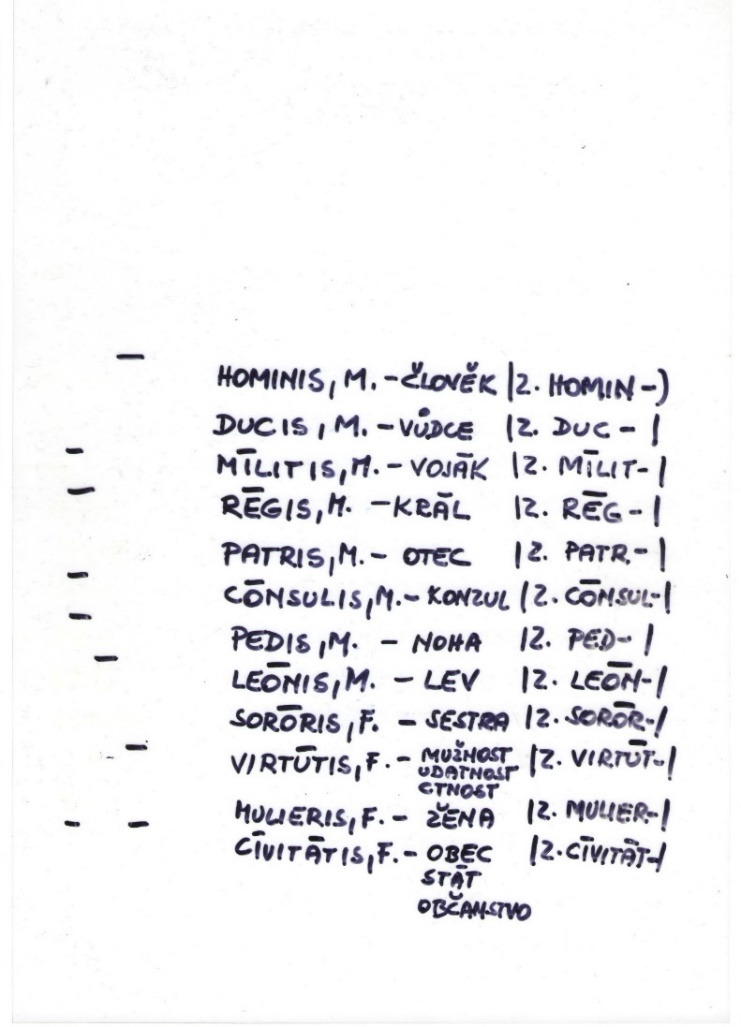 HOMINIS, M. - ČLOVĚK |2. HOMIN-)
DUCIS, M. - VŮDCE |2. DUC - |
MĪLITIS, M. - VOJÁK |2. MĪLIT- |
RĒGIS, M. - KRÁL |2. RĒG - |
PATRIS, M. - OTEC |2. PATR.- |
CŌNSULIS, M. - KONZUL |2. CŌNSUL-|
PEDIS, M. - NOHA |2. PED- |
LEŌNIS, M. - LEV |2. LEŌN-|
SORŌRIS, F. - SESTRA |2. SORŌR-|
VIRTŪTIS, F. - MUŽNOST |2. VIRTŪT-|
UDATNOST
CTNOST
MULIERIS, F. - ŽENA |2. MULIER-|
CĪVITĀTIS, F. - OBEC |2. CĪVITĀT-|
STÁT
OBČANSTVO